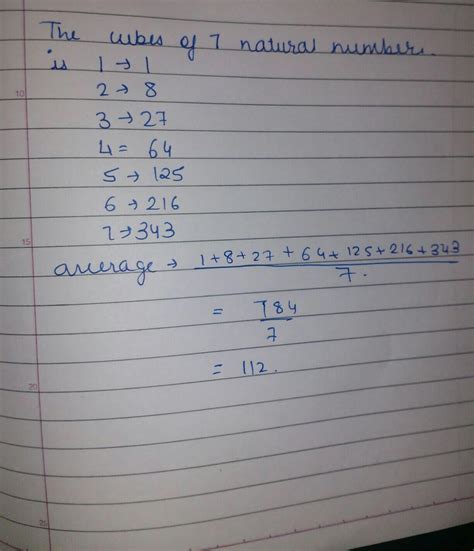 The cubes of 7 natural number.
is 1 → 1
2 → 8
3 → 27
4 = 64
5 → 125
6 → 216
7 → 343
average → 1+8+27+64+125+216+343
7.
= 784
7
= 112.
10
15
20
25